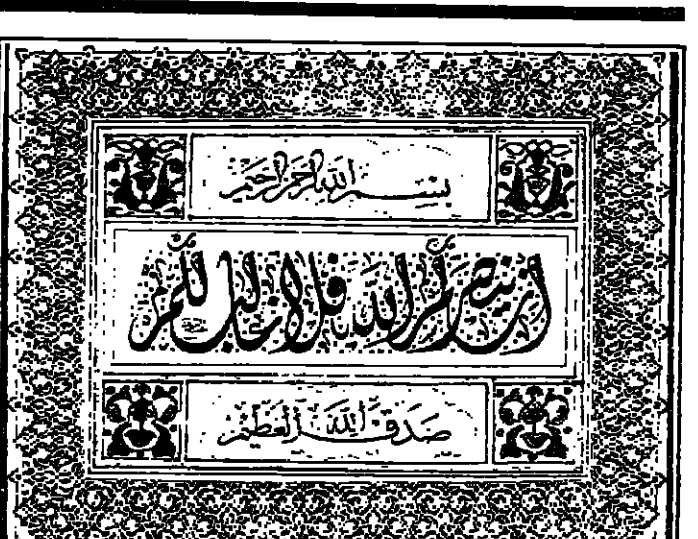 بسم الله الرحمن الرحيم
إن ينصركم الله فلا غالب لكم
صدق الله العظيم